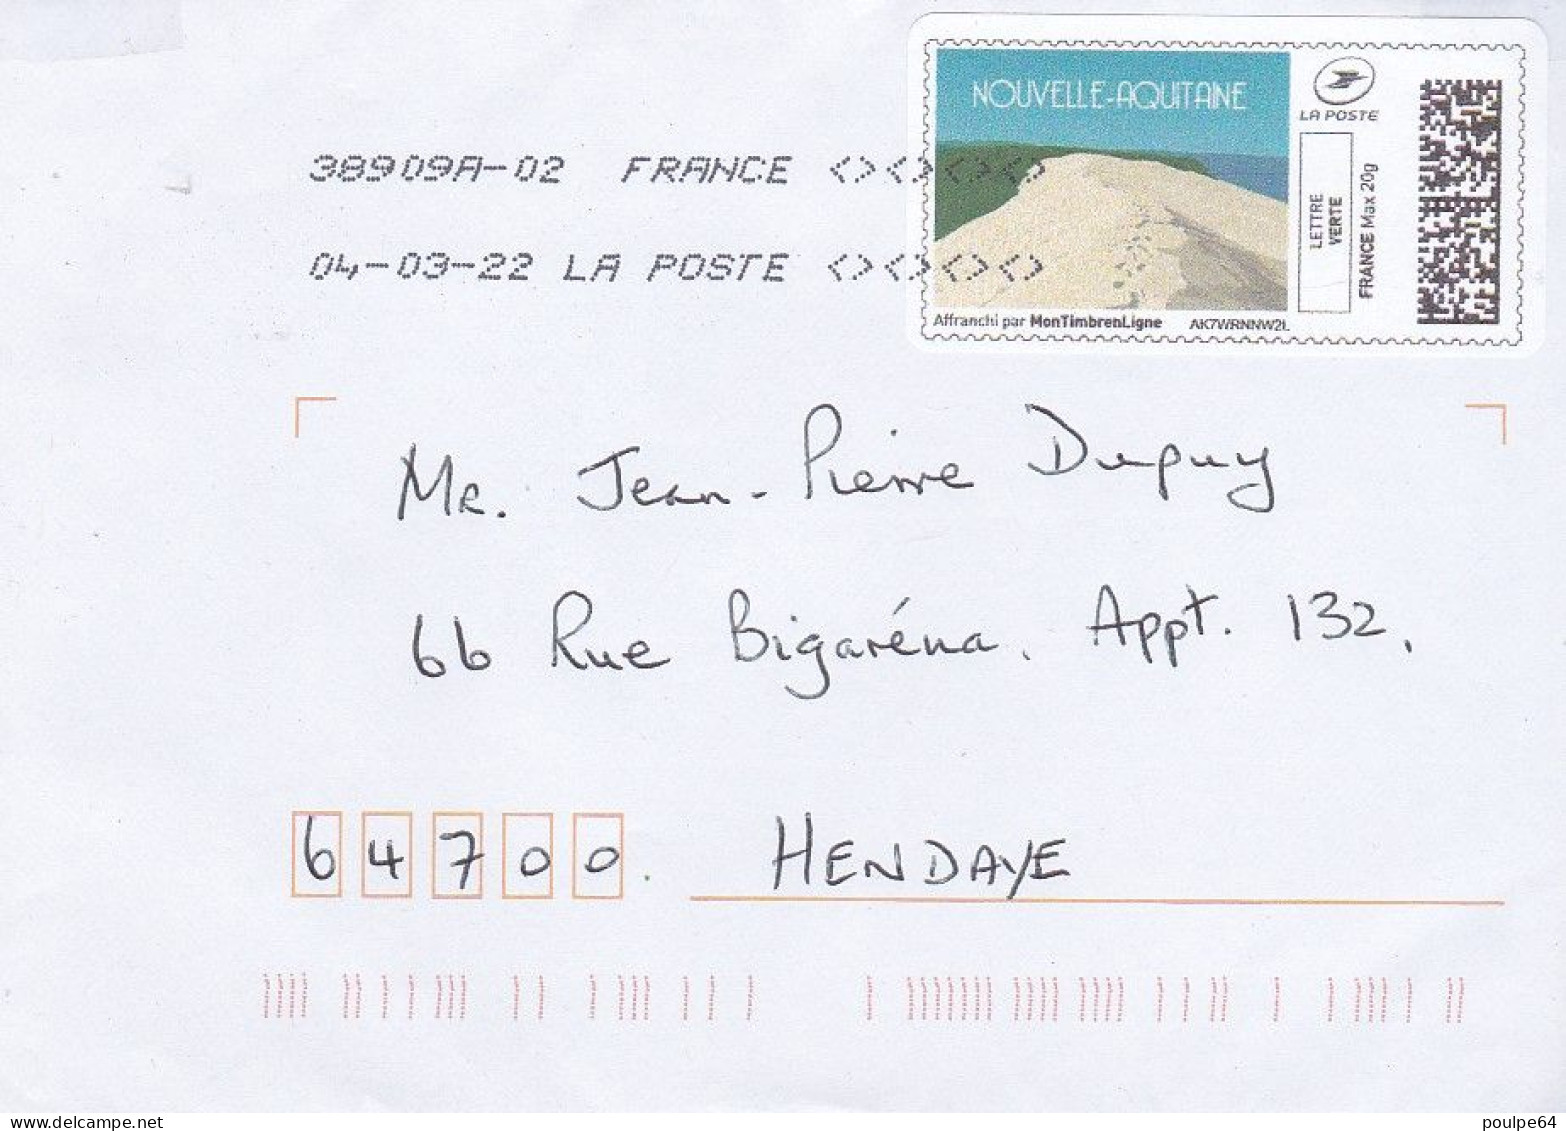 NOUVELLE-AQUITAINE
LA POSTE
LETTRE
VERTE
FRANCE Max 20g
Affranchi par MonTimbrenLigne AK7WRNNW2L
38909A-02 FRANCE <><><><>
04-03-22 LA POSTE <><><><>
Mr. Jean-Pierre Dupuy
66 Rue Bigaréna. Appt. 132,
64700. HENDAYE
poulpe64